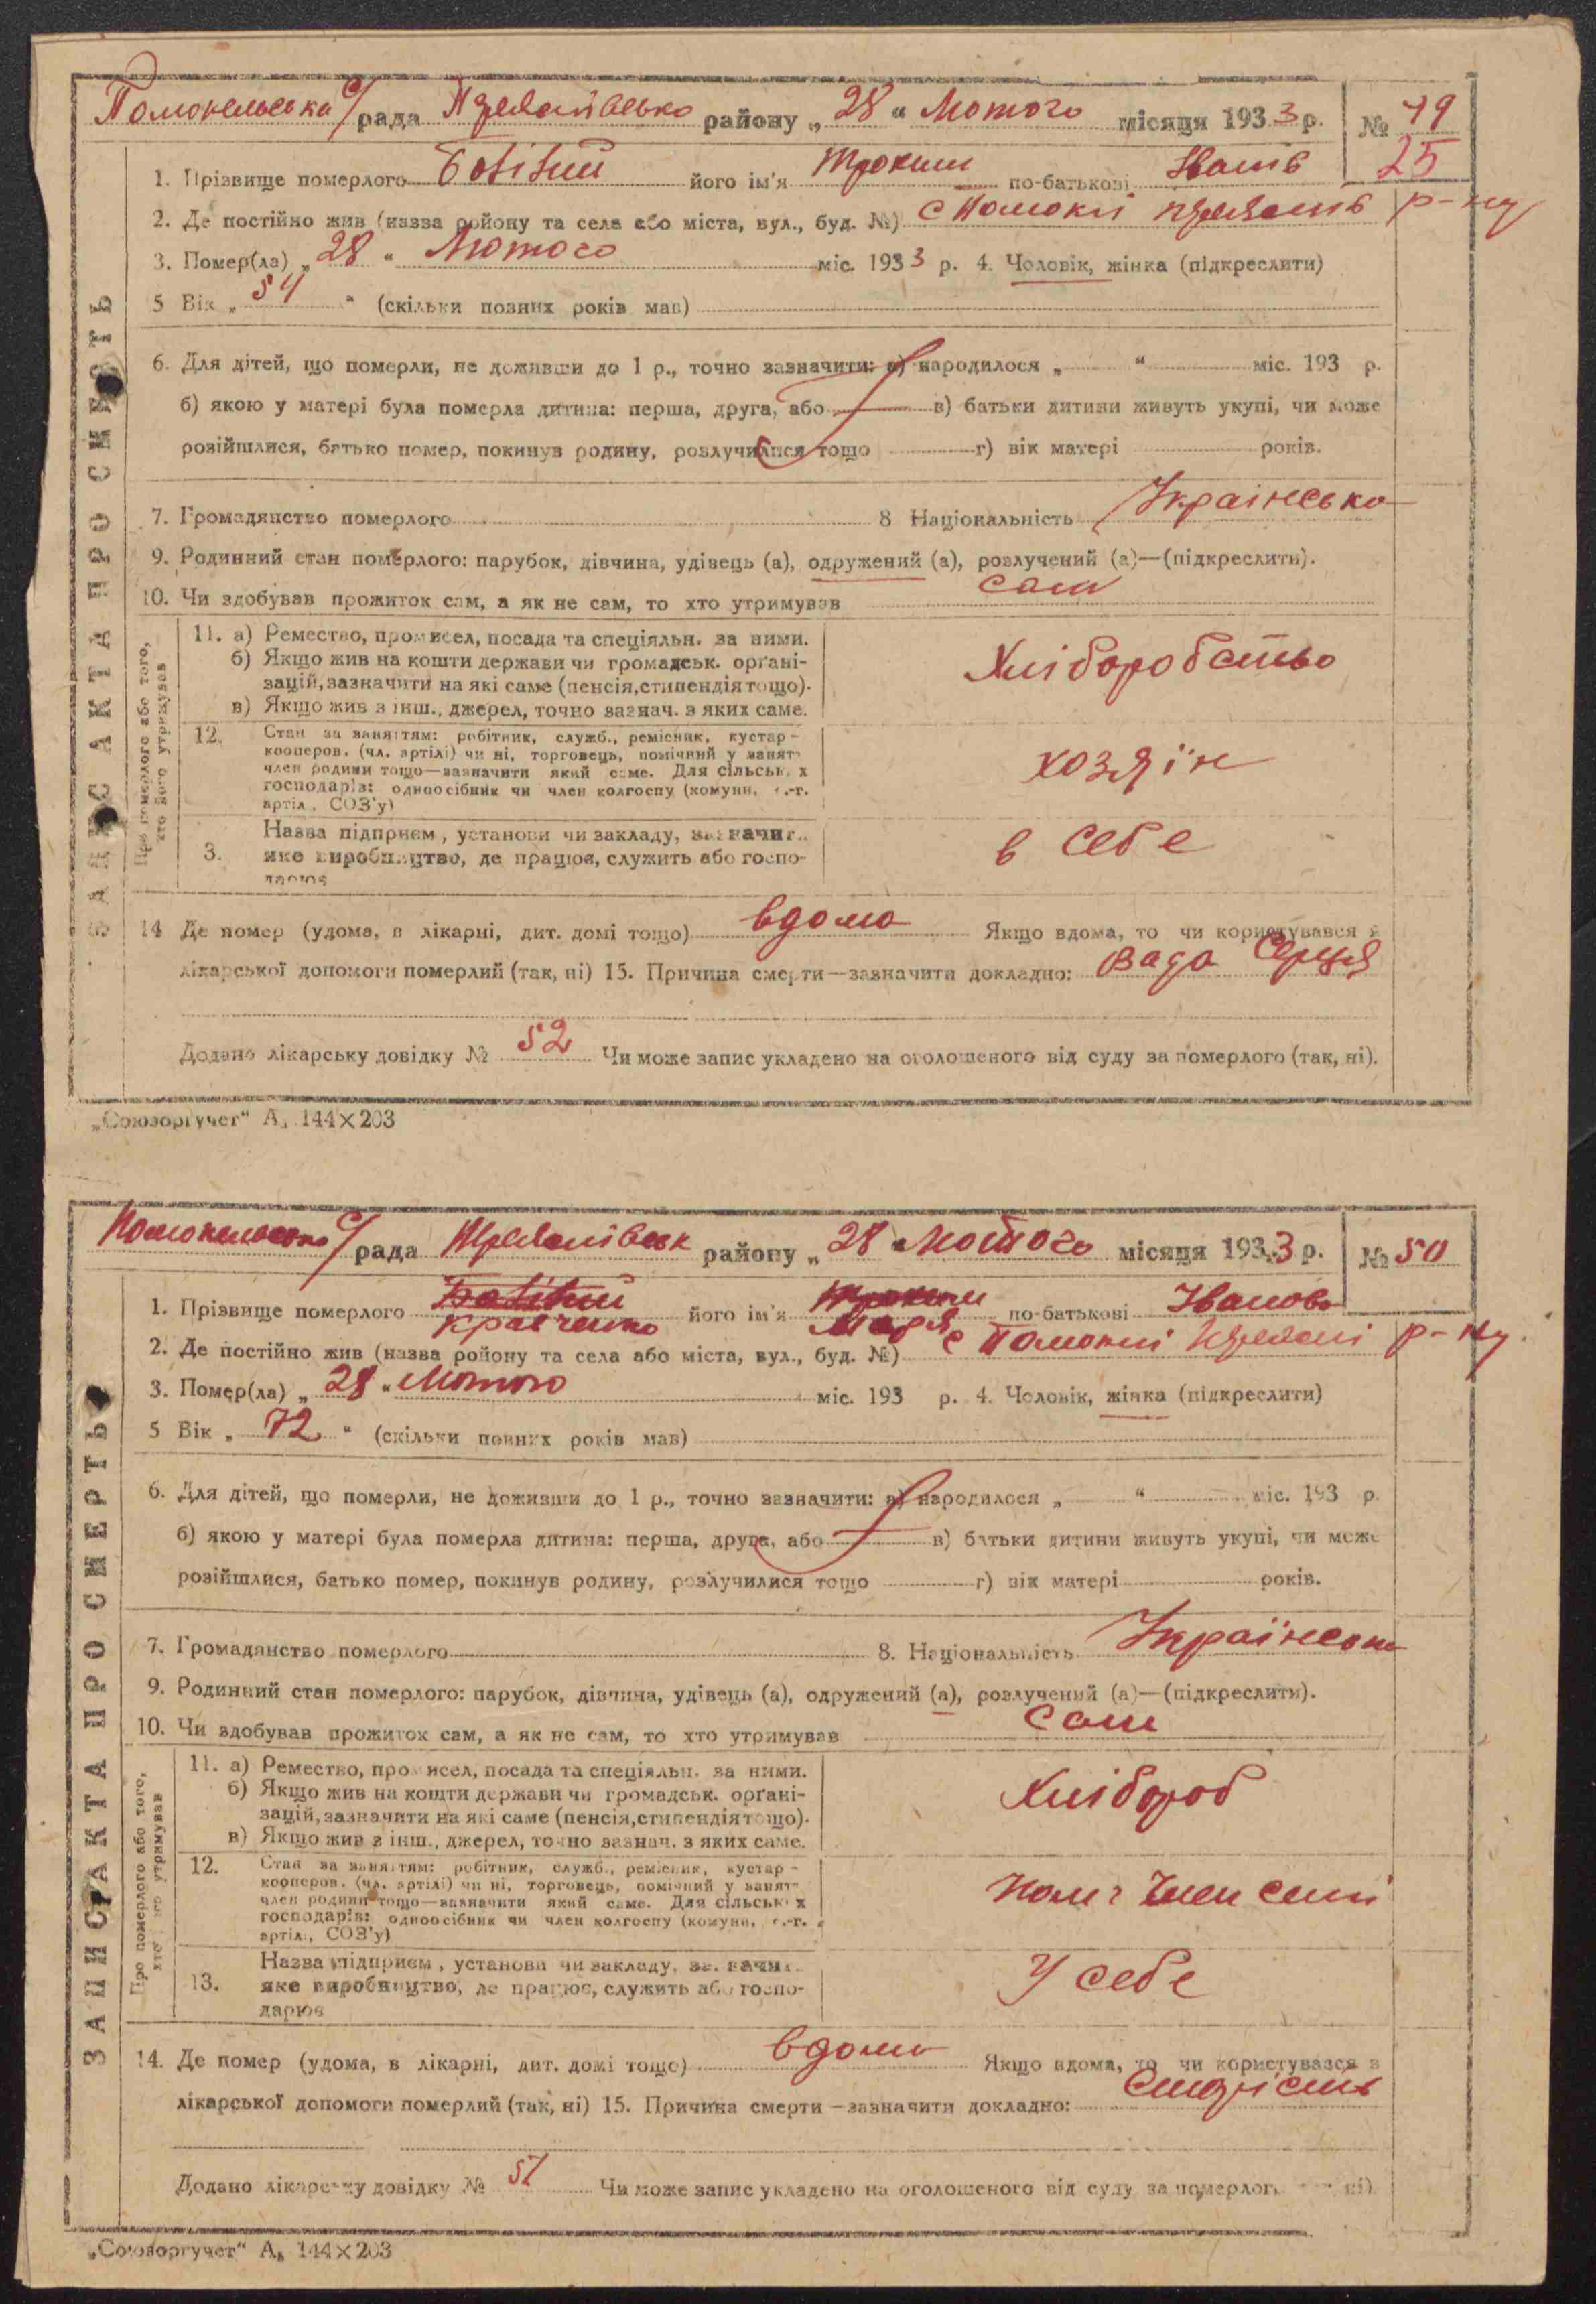 Помокельська с/рада району „28“ Лютого місяця 1933 р. № 49
25
1. Прізвище померлого його ім'я Трохим по-батькові Іванів
2. Де постійно жив (назва ройону та села або міста, вул., буд. №) с р-ну
3. Помер(ла) „28“ Лютого міс. 1933 р. 4. Чоловік, жінка (підкреслити)
5 Вік „54“ (скільки повних років мав)
6. Для дітей, що померли, не доживши до 1 р., точно зазначити: а) народилося „ “ міс. 193 р.
б) якою у матері була померла дитина: перша, друга, або в) батьки дитини живуть укупі, чи може
розійшлися, батько помер, покинув родину, розлучилися тощо г) вік матері років.
7. Громадянство померлого 8 Національність Українська
9. Родинний стан померлого: парубок, дівчина, удівець (а), одружений (а), розлучений (а)—(підкреслити).
10. Чи здобував прожиток сам, а як не сам, то хто утримував сам
Про померлого або того,
хто його утримував
11. а) Ремество, промисел, посада та спеціяльн. за ними.
б) Якщо жив на кошти держави чи громадськ. орґані-
зацій, зазначити на які саме (пенсія, стипендія тощо).
в) Якщо жив з інш., джерел, точно зазнач. з яких саме.
Хліборобство
12. Стан за заняттям: робітник, служб., ремісник, кустар-
кооперов. (чл. артілі) чи ні, торговець, помічний у занят
член родини тощо—зазначити який саме. Для сільськ х
господарів: одноосібник чи член колгоспу (комуни, с.-г.
артіл, СОЗ'у)
хозяїн
3. Назва підприєм, установи чи закладу, зазначит
яке виробництво, де працює, служить або госпо-
дарює
в себе
14 Де помер (удома, в лікарні, дит. домі тощо) вдома Якщо вдома, то чи користувався з
лікарської допомоги померлий (так, ні) 15. Причина смерти—зазначити докладно: Вада Серця
Додано лікарську довідку № 52 Чи може запис укладено на оголошеного від суду за померлого (так, ні).
ЗАПИС АКТА ПРО СМЕРТЬ
„Союзоргучет“ А₅ 144×203
с/рада району „28“ Лютого місяця 1933 р. № 50
1. Прізвище померлого Кравченко його ім'я Трохим Марія по-батькові Іванова
2. Де постійно жив (назва ройону та села або міста, вул., буд. №) с р-ну
3. Помер(ла) „28“ Лютого міс. 193 р. 4. Чоловік, жінка (підкреслити)
5 Вік „72“ (скільки повних років мав)
6. Для дітей, що померли, не доживши до 1 р., точно зазначити: а) народилося „ “ міс. 193 р.
б) якою у матері була померла дитина: перша, друга, або в) батьки дитини живуть укупі, чи може
розійшлися, батько помер, покинув родину, розлучилися тощо г) вік матері років.
7. Громадянство померлого 8. Національність Українська
9. Родинний стан померлого: парубок, дівчина, удівець (а), одружений (а), розлучений (а)—(підкреслити).
10. Чи здобував прожиток сам, а як не сам, то хто утримував сам
Про померлого або того,
хто його утримував
11. а) Ремество, промисел, посада та спеціяльн. за ними.
б) Якщо жив на кошти держави чи громадськ. орґані-
зацій, зазначити на які саме (пенсія, стипендія тощо).
в) Якщо жив з інш., джерел, точно зазнач. з яких саме.
Хлібороб
12. Стан за заняттям: робітник, служб., ремісник, кустар-
кооперов. (чл. артілі) чи ні, торговець, помічний у занят
член родини тощо—зазначити який саме. Для сільськ х
господарів: одноосібник чи член колгоспу (комуни, с.-г.
артіл, СОЗ'у)
член сімї
13. Назва підприєм, установи чи закладу, зазначи
яке виробництво, де працює, служить або госпо-
дарює
У себе
14. Де помер (удома, в лікарні, дит. домі тощо) вдома Якщо вдома, то чи користувався з
лікарської допомоги померлий (так, ні) 15. Причина смерти—зазначити докладно: Старість
Додано лікарську довідку № 51 Чи може запис укладено на оголошеного від суду за померлого ні).
ЗАПИС АКТА ПРО СМЕРТЬ
„Союзоргучет“ А₅ 144×203